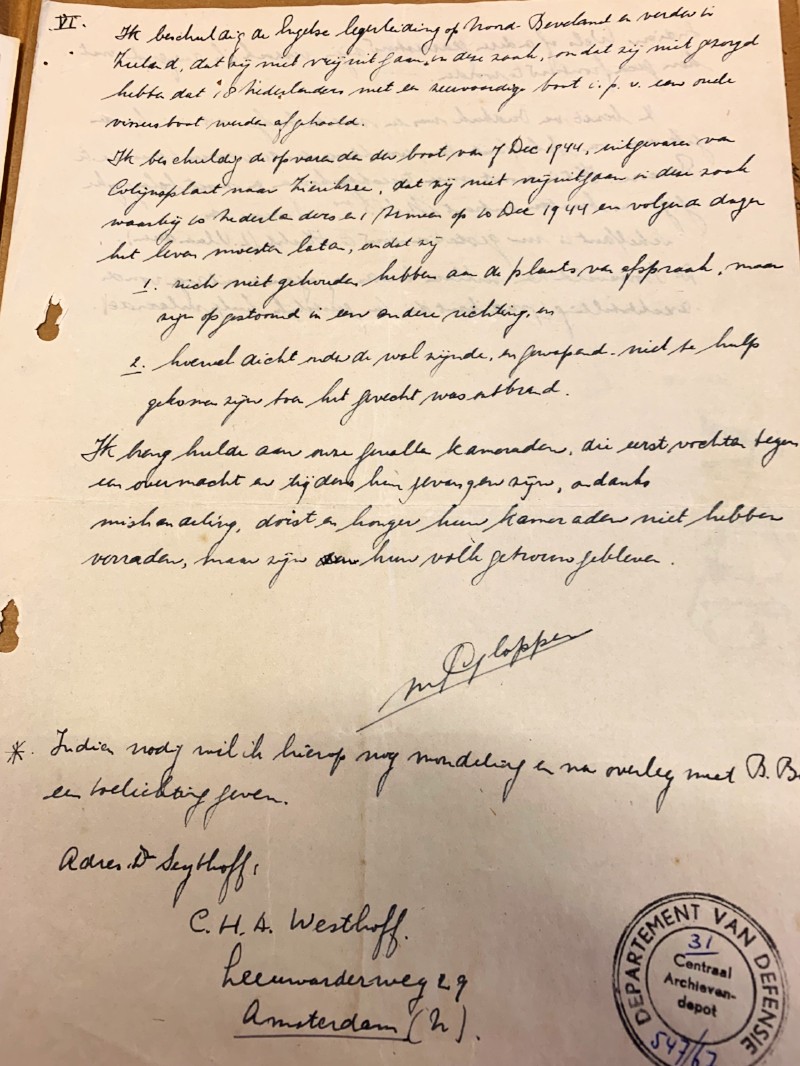 VI. Ik beschuldig de Engelse legerleiding op Noord-Beveland en verder in
Zeeland, dat zij niet vrijuit gaan in deze zaak, omdat zij niet gezorgd
hebben dat 18 Nederlanders met een zeewaardige boot i.p.v. een oude
vissersboot werden afgehaald.
Ik beschuldig de opvarenden der boot van 7 Dec 1944, uitgevaren van
Colijnsplaat naar Zierikzee, dat zij niet vrijuitgaan in deze zaak
waarbij 10 Nederlanders en 1 op 10 Dec 1944 en volgende dagen
het leven moesten laten, omdat zij
1. zich niet gehouden hebben aan de plaats van afspraak, maar
zijn opgestoomd in een andere richting, en
2. hoewel dicht onder de wal zijnde, en gewapend niet te hulp
gekomen zijn toen het gevecht was ontbrand.
Ik breng hulde aan onze gevallen kameraden, die eerst vochten tegen
een overmacht en tijdens hun gevangen zijn, ondanks
mishandeling, dorst en honger hun kameraden niet hebben
verraden, maar zijn hun volk getrouw gebleven.
*. Indien nodig wil ik hierop nog mondeling en na overleg met B.B.
een toelichting geven.
Adres Dr Seythoff:
C. H. A. Westhoff.
Leeuwarderweg 29
Amsterdam (N).
DEPARTEMENT VAN DEFENSIE
31
Centraal
Archieven-
depot
547/67